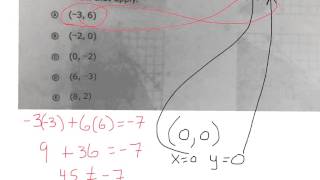 that apply.
A (-3, 6)
B (-2, 0)
C (0, -2)
D (6, -3)
E (8, 2)
-3(-3) + 6(6) = -7
9 + 36 = -7
45 ≠ -7
(0, 0)
x=0 y=0